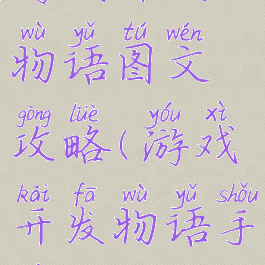 wù yǔ tú wén
物语图文
gōng lüè yóu xì
攻略(游戏
kāi fā wù yǔ shǒu
开发物语手